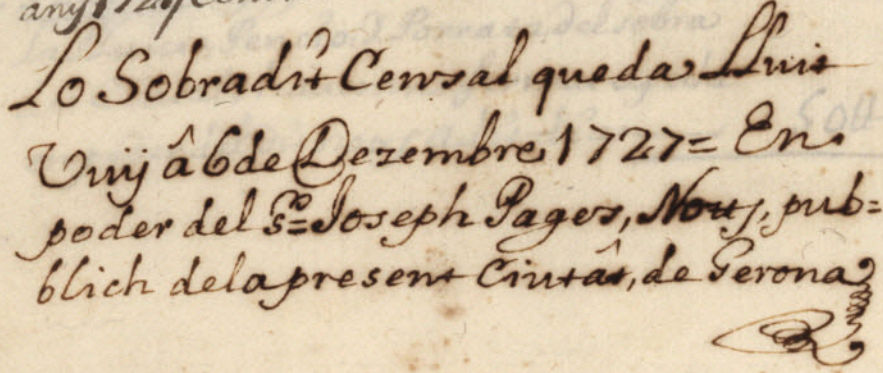 Lo Sobradit Censal queda Lluit
Vuÿ â 6 de Dezembre 1727 = En
poder del Sr. Joseph Pages, Nots, pub=
blich dela present Ciutât, de Gerona